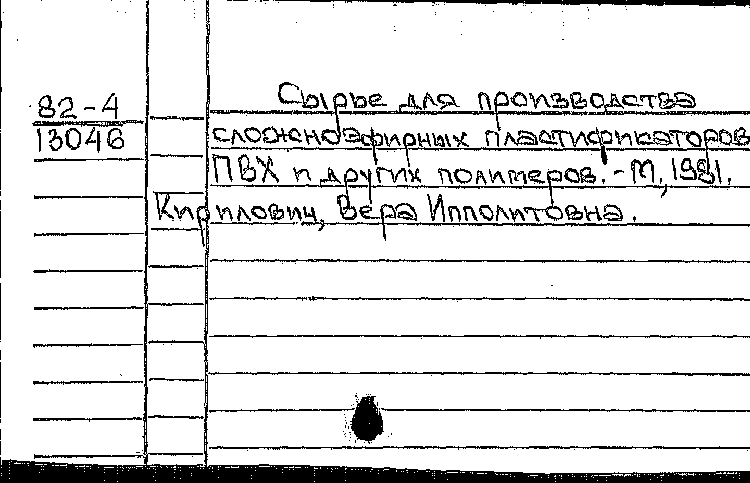 82-4
13046
Сырье для производства
сложноэфирных пластификаторов
ПВХ и других полимеров. - М, 1981.
Кирилович, Вера Ипполитовна.